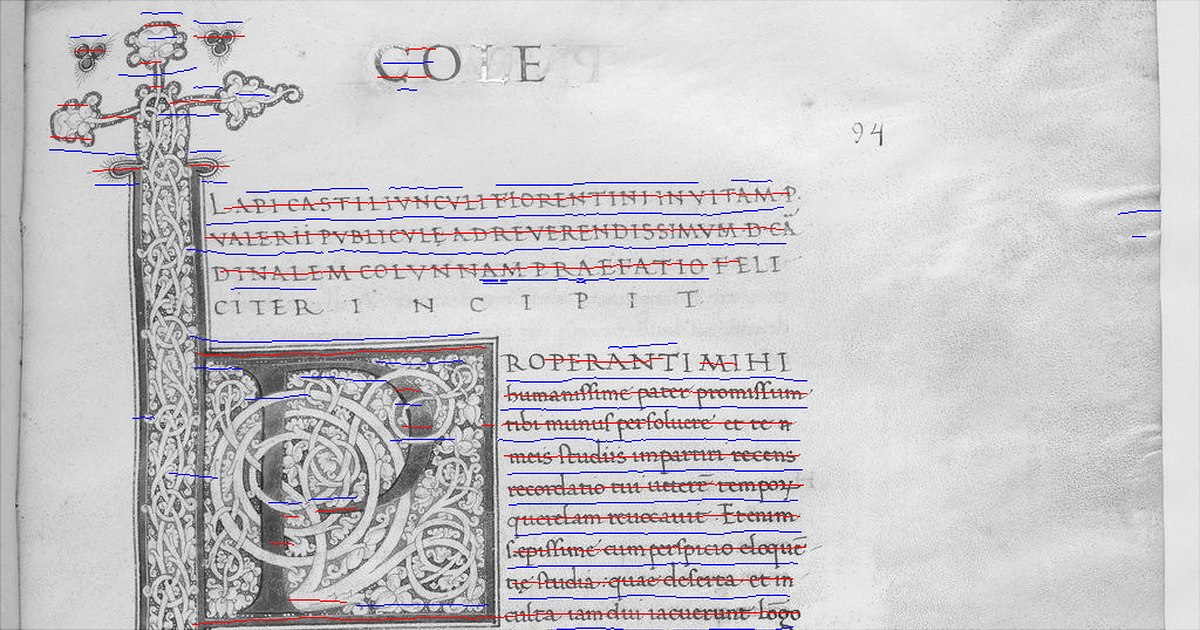 COLE
94
LAPI CASTILIVNCVLI FLORENTINI IN VITAM P.
VALERII PVBLICVLĘ AD REVERENDISSIMVM D. CĀ
DINALEM COLVNNAM PRAEFATIO FELI
CITER INCIPIT
PROPERANTI MIHI
humanissime pater promissum
tibi munus persoluere et te in
meis studiis impartiri recens
recordatio tui
querelam reuocauit. Etenim
sępissime cum perspicio eloquē
tię studia: quae deserta et in
culta iam diu iacuerunt longo